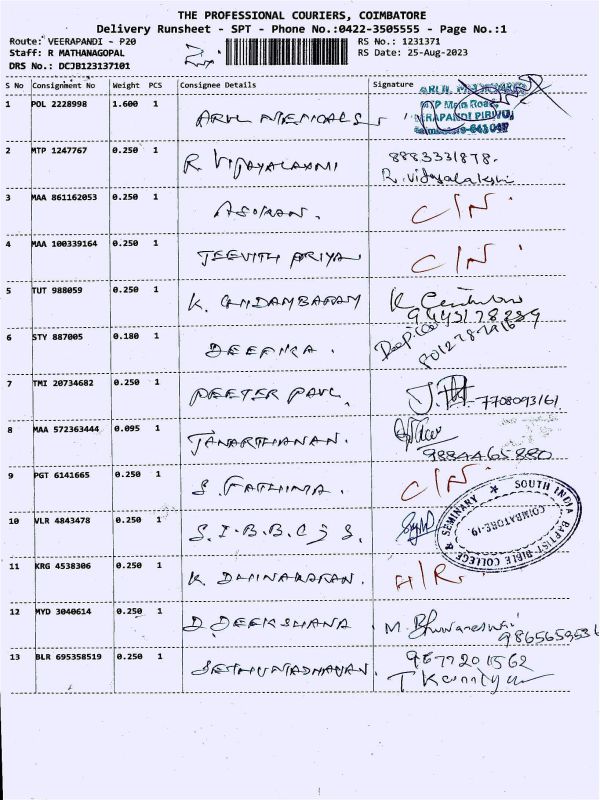 THE PROFESSIONAL COURIERS, COIMBATORE
Delivery Runsheet - SPT - Phone No.:0422-3505555 - Page No.:1
Route: VEERAPANDI - P20 RS No.: 1231371
Staff: R MATHANAGOPAL RS Date: 25-Aug-2023
DRS No.: DCJB123137101
S No Consignment No Weight PCS Consignee Details Signature
1 POL 2228998 1.600 1 ARUL MEDICALS
MTP Main Road,
2 MTP 1247767 0.250 1 R VIJAYALAXMI 8883331878.
R. Vidyalakshi
3 MAA 861162053 0.250 1 ASOKAN. C/N.
4 MAA 100339164 0.250 1 JEEVITH PRIYA C/N.
5 TUT 988059 0.250 1 K. CHIDAMBARAM K
9443178289
6 STY 887005 0.180 1 DEEPIKA.
7 TMI 20734682 0.250 1 PEETER PAUL. 7708093161
8 MAA 572363444 0.095 1 JANARTHANAN.
9884465880
9 PGT 6141665 0.250 1 S. FATHIMA. C/N.
10 VLR 4843478 0.250 1 S.I.B.B.C & S. SOUTH INDIA BAPTIST BIBLE COLLEGE & SEMINARY
COIMBATORE-19
11 KRG 4538306 0.250 1 K. DHINAKARAN. H/R.
12 MYD 3040614 0.250 1 D DEEKSHANA M. Bhuvaneswari
13 BLR 695358519 0.250 1 SETHUMADHAVAN. 9677201562